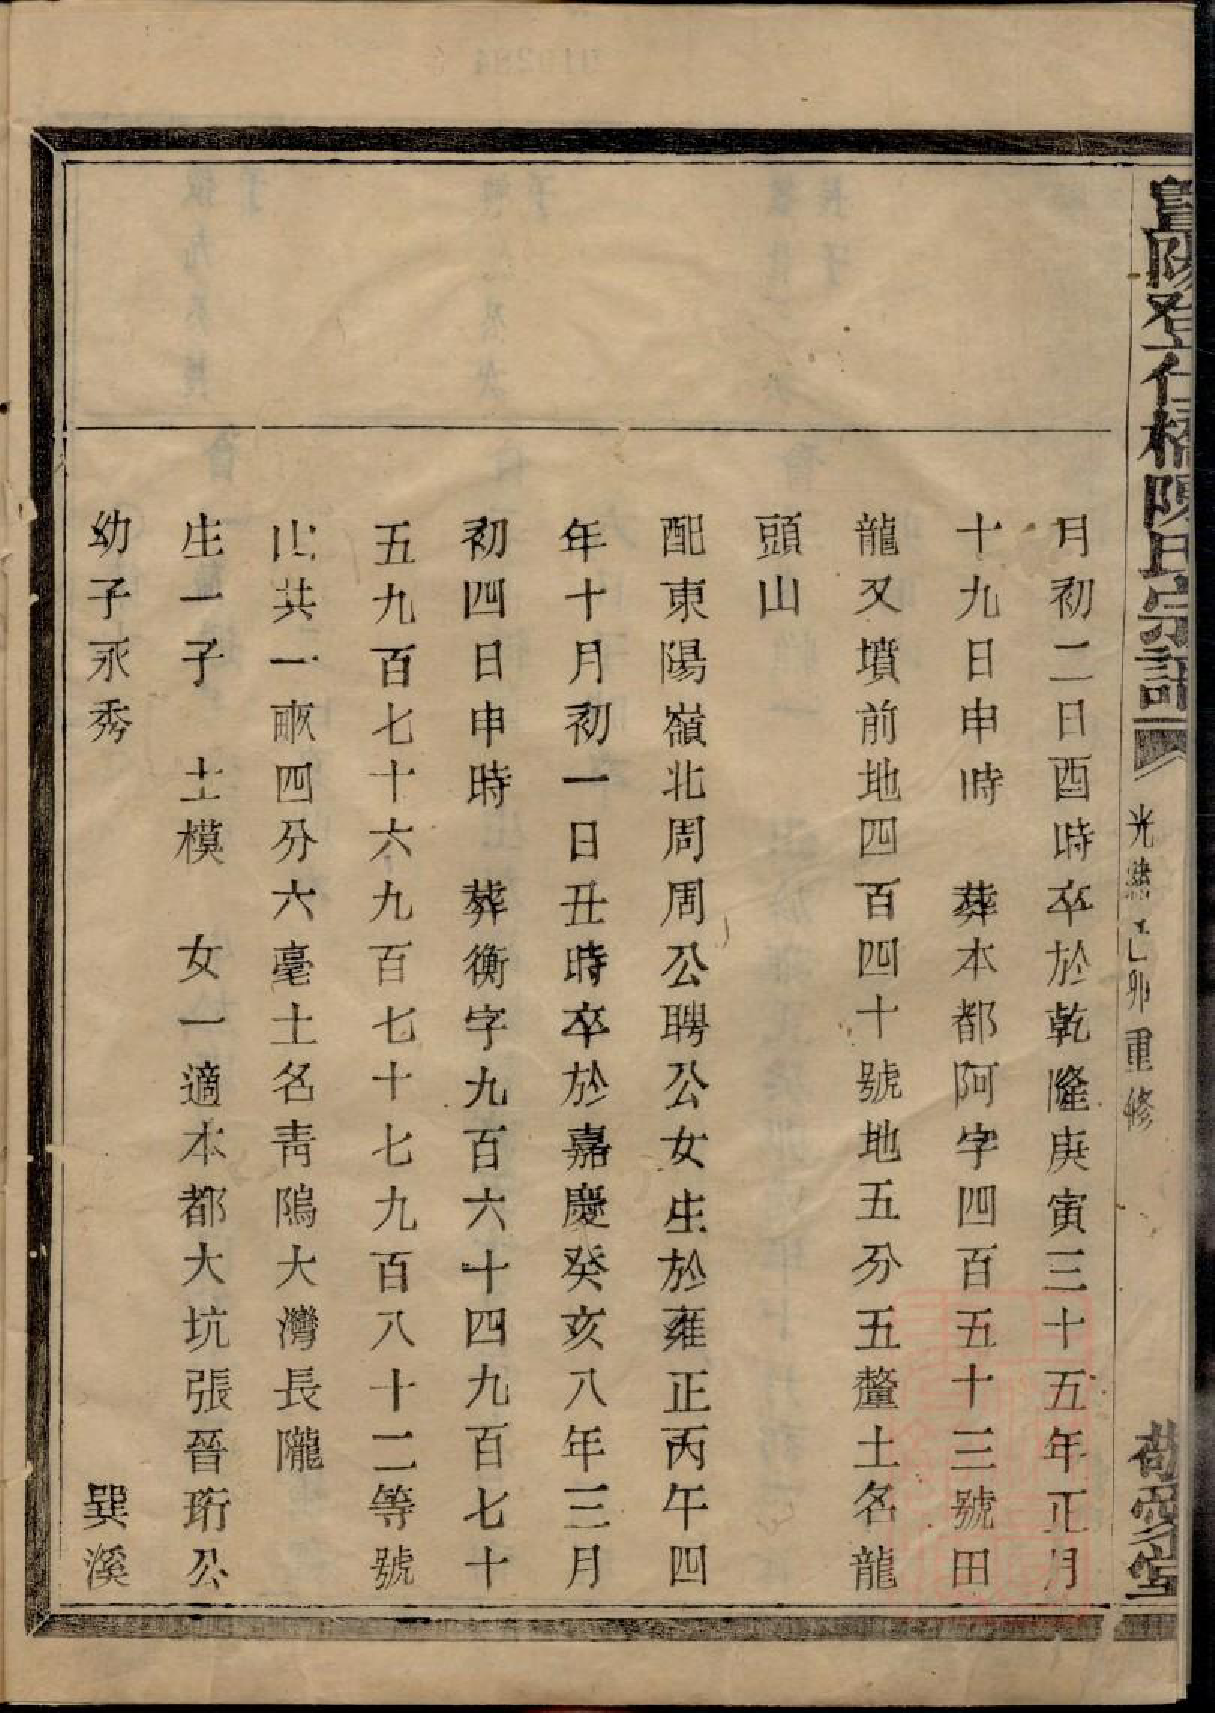 暨陽登仕橋陳氏宗譜
光緒己卯重修
敬愛堂
月初二日酉時卒於乾隆庚寅三十五年正月
十九日申時　葬本都阿字四百五十三號田
龍又墳前地四百四十號地五分五釐土名龍
頭山
配東陽嶺北周周公聘公女生於雍正丙午四
年十月初一日丑時卒於嘉慶癸亥八年三月
初四日申時　葬衡字九百六十四九百七十
五九百七十六九百七十七九百八十二等號
山共一畝四分六毫土名青隖大灣長隴
生一子　士模　女一適本都大坑張晉珩公
幼子永秀
巽溪